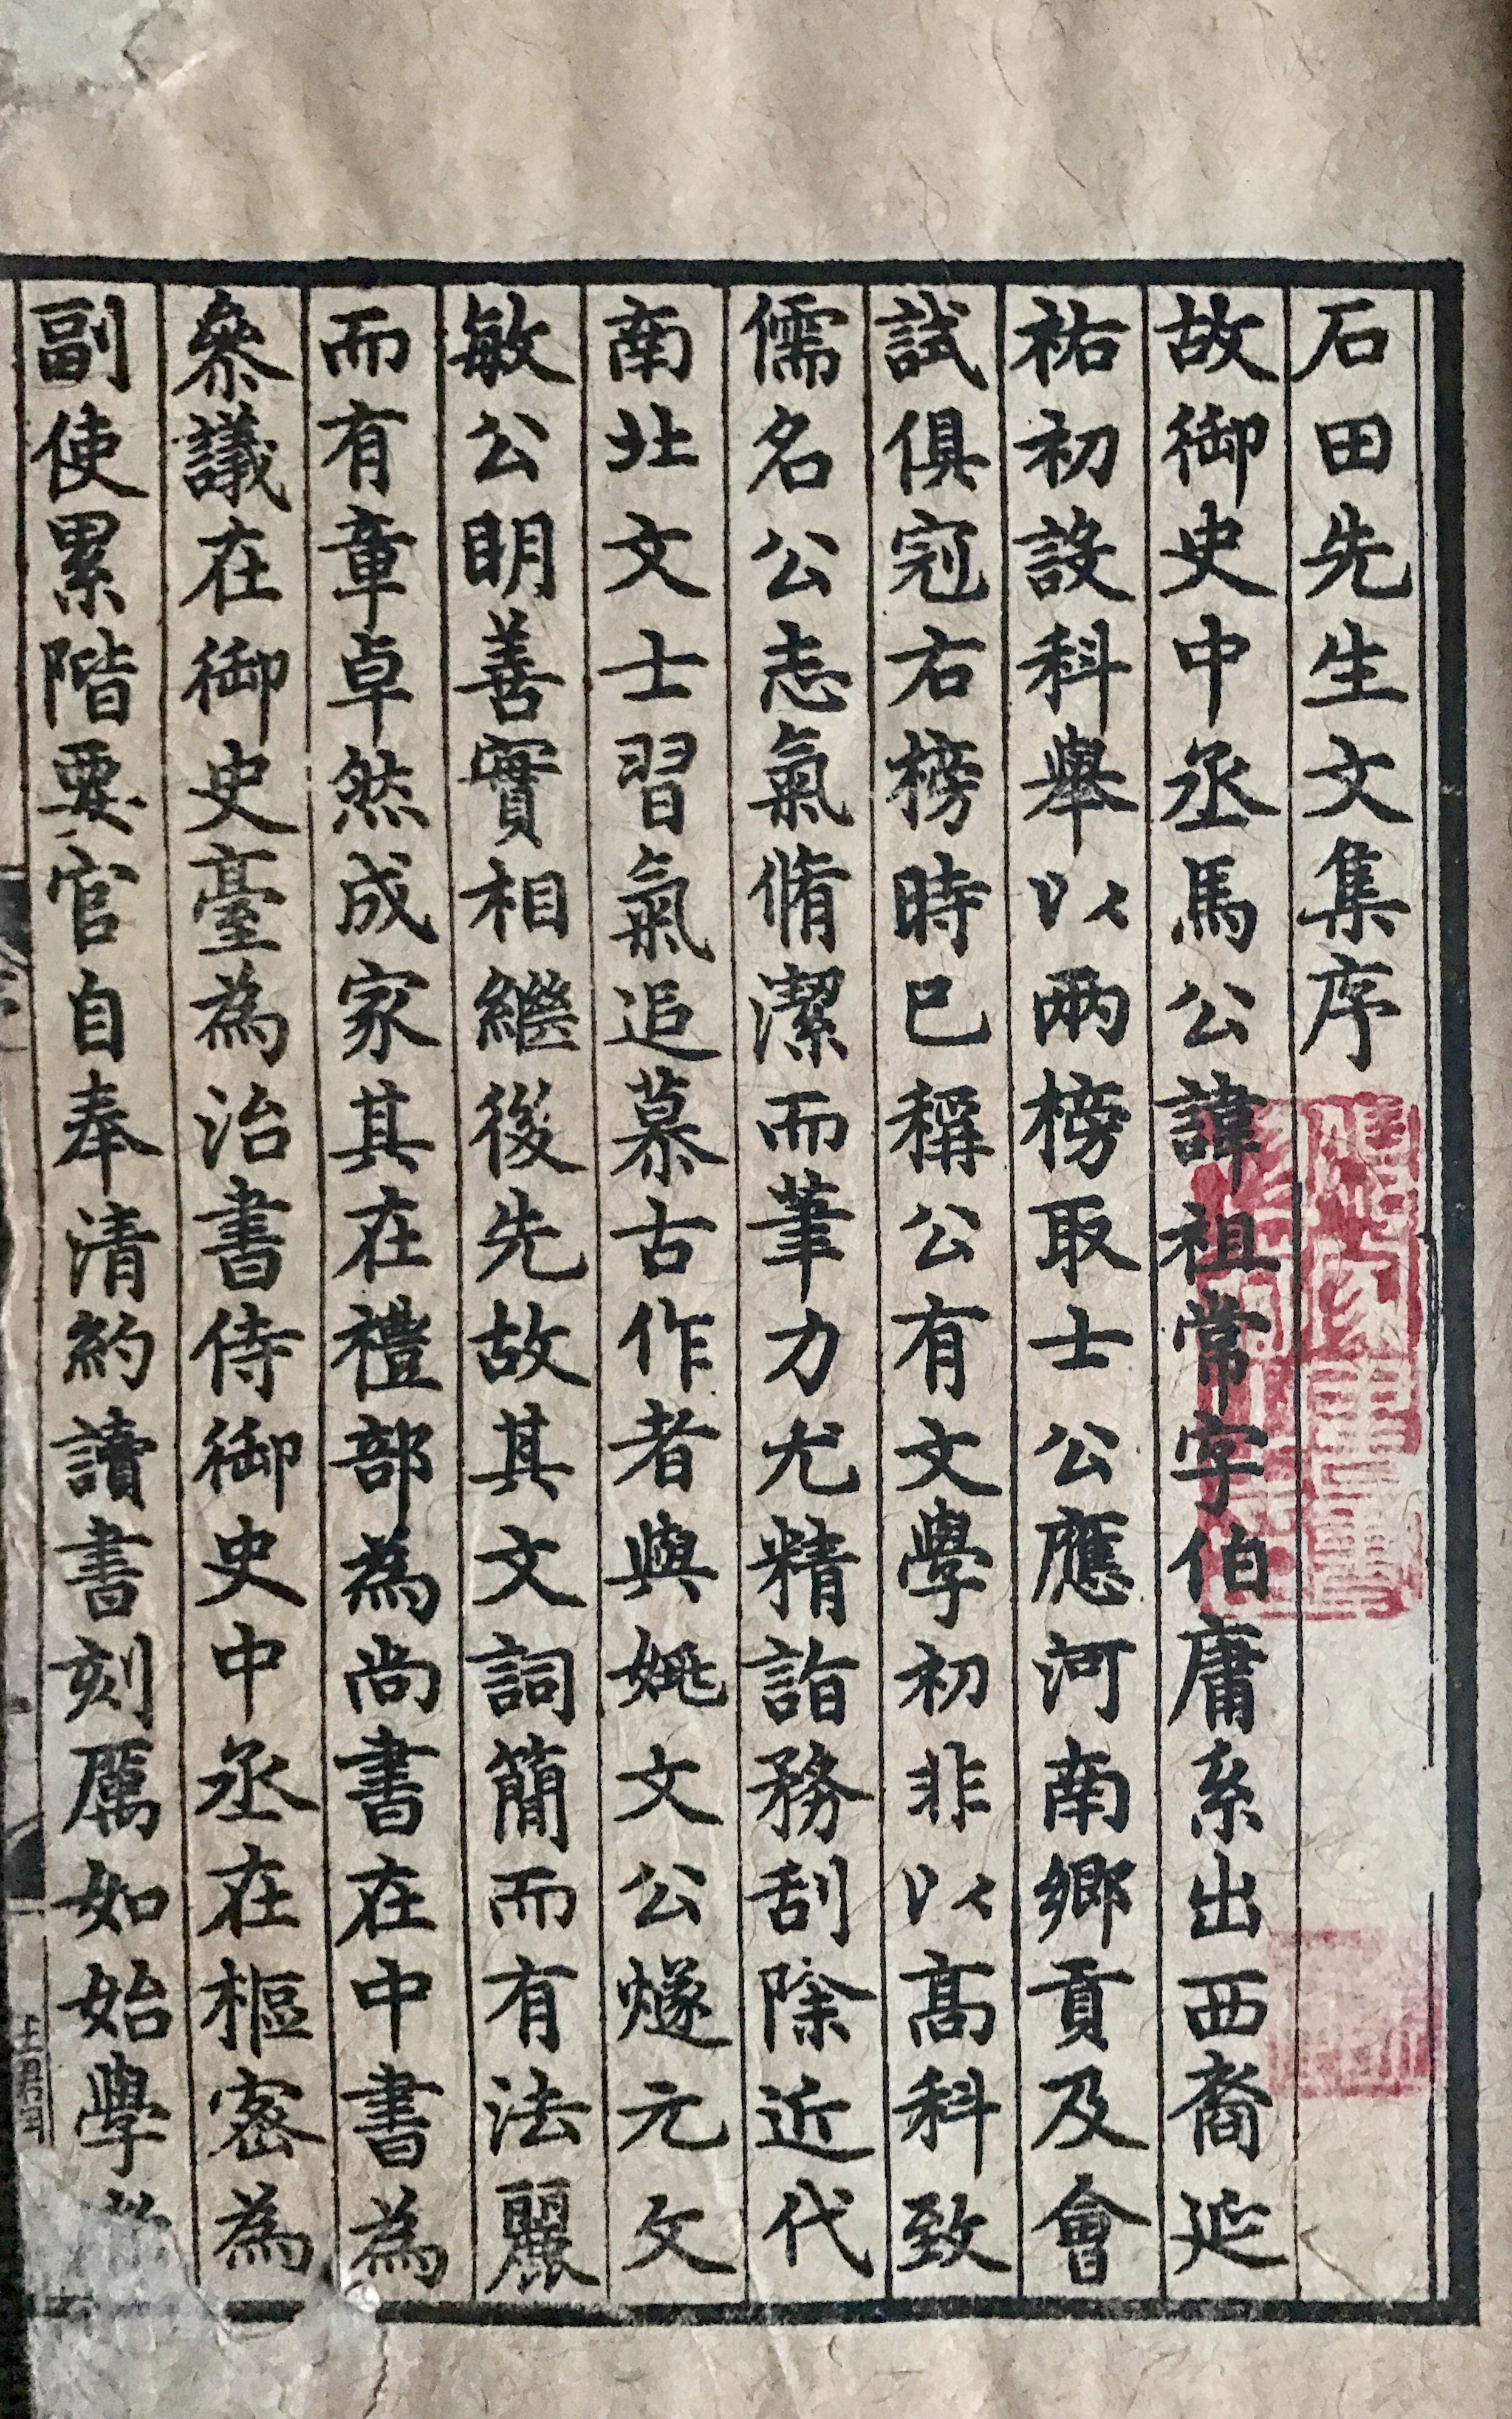 石田先生文集序
故御史中丞馬公諱祖常字伯庸系出西裔延
祐初設科舉以兩榜取士公應河南鄉貢及會
試俱冠右榜時已稱公有文學初非以髙科致
儒名公志氣脩潔而筆力尤精詣務刮除近代
南北文士習氣追慕古作者與姚文公燧元文
敏公明善實相繼後先故其文詞簡而有法麗
而有章卓然成家其在禮部為尚書在中書為
叅議在御史臺為治書侍御史中丞在樞密為
副使累階要官自奉清約讀書刻厲如始學